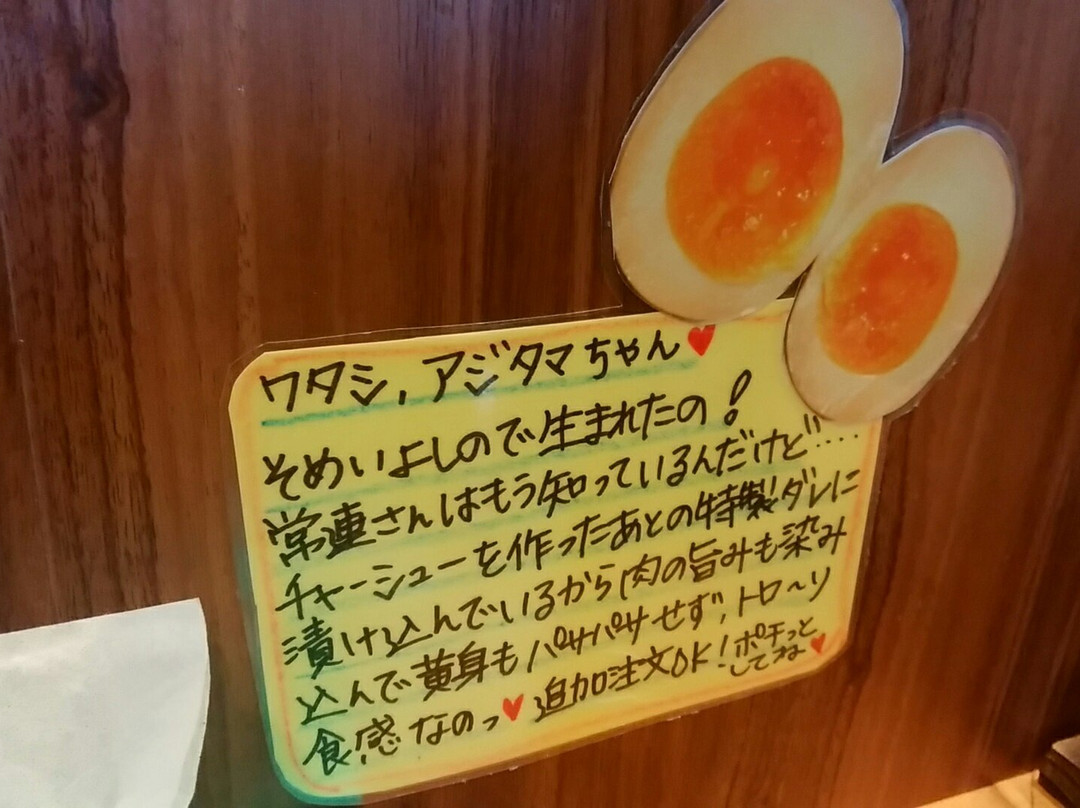 ワタシ、アジタマちゃん♥
そめいよしので生まれたの!
常連さんはもう知っているんだけど…
チャーシューを作ったあとの特製ダレに
漬け込んでいるから肉の旨みも染み
込んで黄身もパサパサせず、トロ〜リ
食感なのっ♥追加注文OK!ポチっと
してね♥